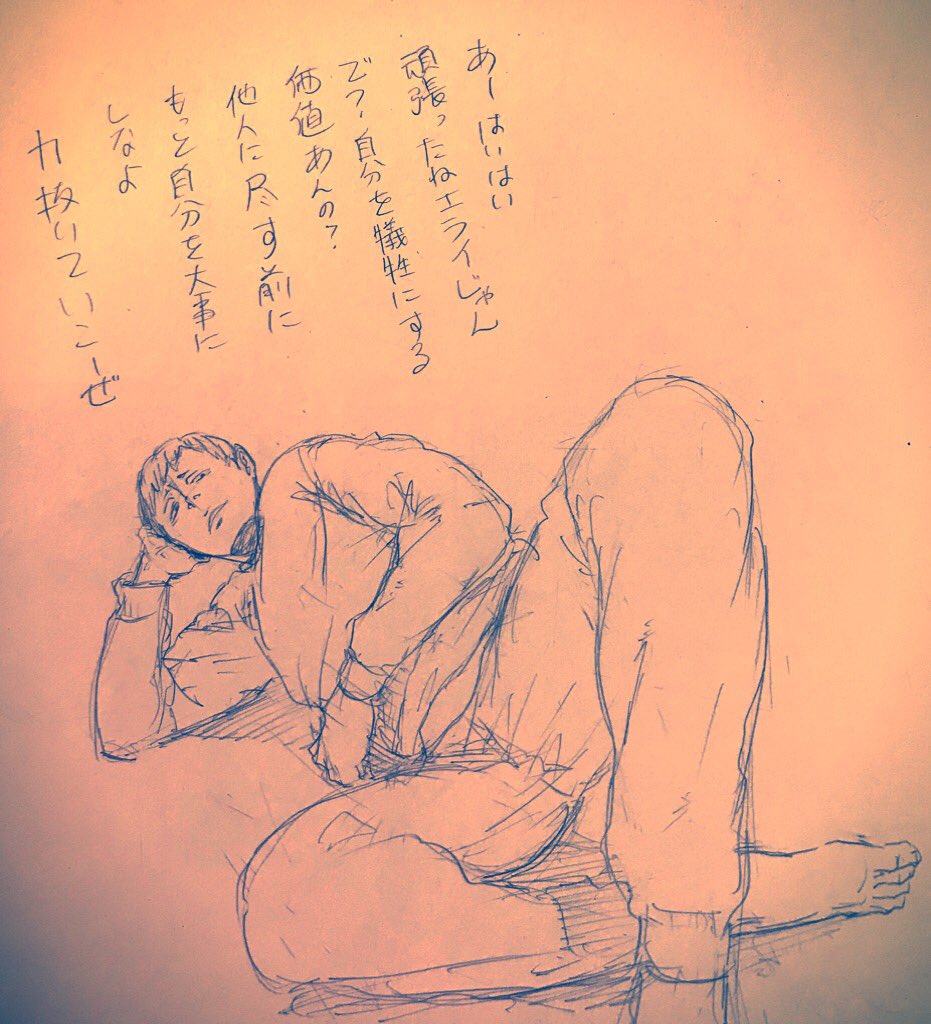 あーはいはい
頑張ったねエライじゃん
で？自分を犠牲にする
価値あんの？
他人に尽す前に
もっと自分を大事に
しなよ
力抜いていこーぜ